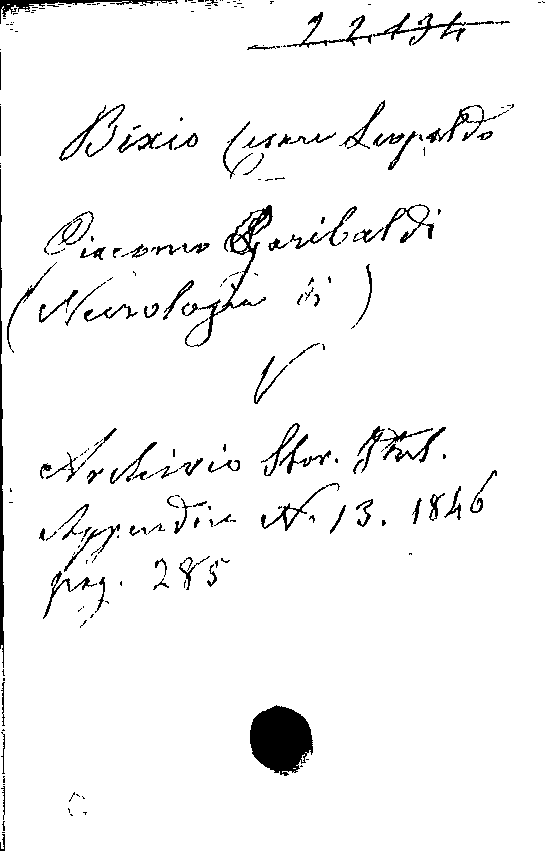 2.2.134
Bixio Cesare Leopoldo
Giacomo Garibaldi
(Necrologia di)
V
Archivio Stor. Ital.
Appendice N. 13. 1846
pag. 285